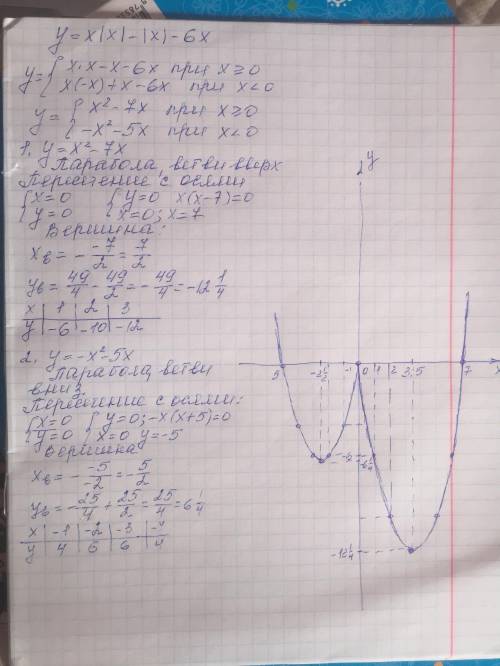 y=x|x|-|x|-6x
y={x·x-x-6x при x≥0
x(-x)+x-6x при x<0
y={x²-7x при x≥0
-x²-5x при x<0
1. y=x²-7x
Парабола, ветви вверх
Пересечение с осями
{x=0 {y=0 x(x-7)=0
y=0 x=0; x=7
Вершина:
xв = - -7/2 = 7/2
yв = 49/4 - 49/2 = -49/4 = -12 1/4
x 1 2 3
y -6 -10 -12
2. y=-x²-5x
Парабола, ветви
вниз
Пересечение с осями:
{x=0 {y=0; -x(x+5)=0
y=0 x=0 y=-5
Вершина
xв = - -5/-2 = -5/2
yв = -25/4 + 25/2 = 25/4 = 6 1/4
x -1 -2 -3 -4
y 4 6 6 4
y
-2 1/2 -1 0 1 2 3,5 7 x
-6
-6 1/4
-12 1/4